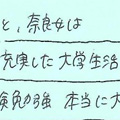 と, 奈良女は
充実した大学生活
験勉強 本当に大